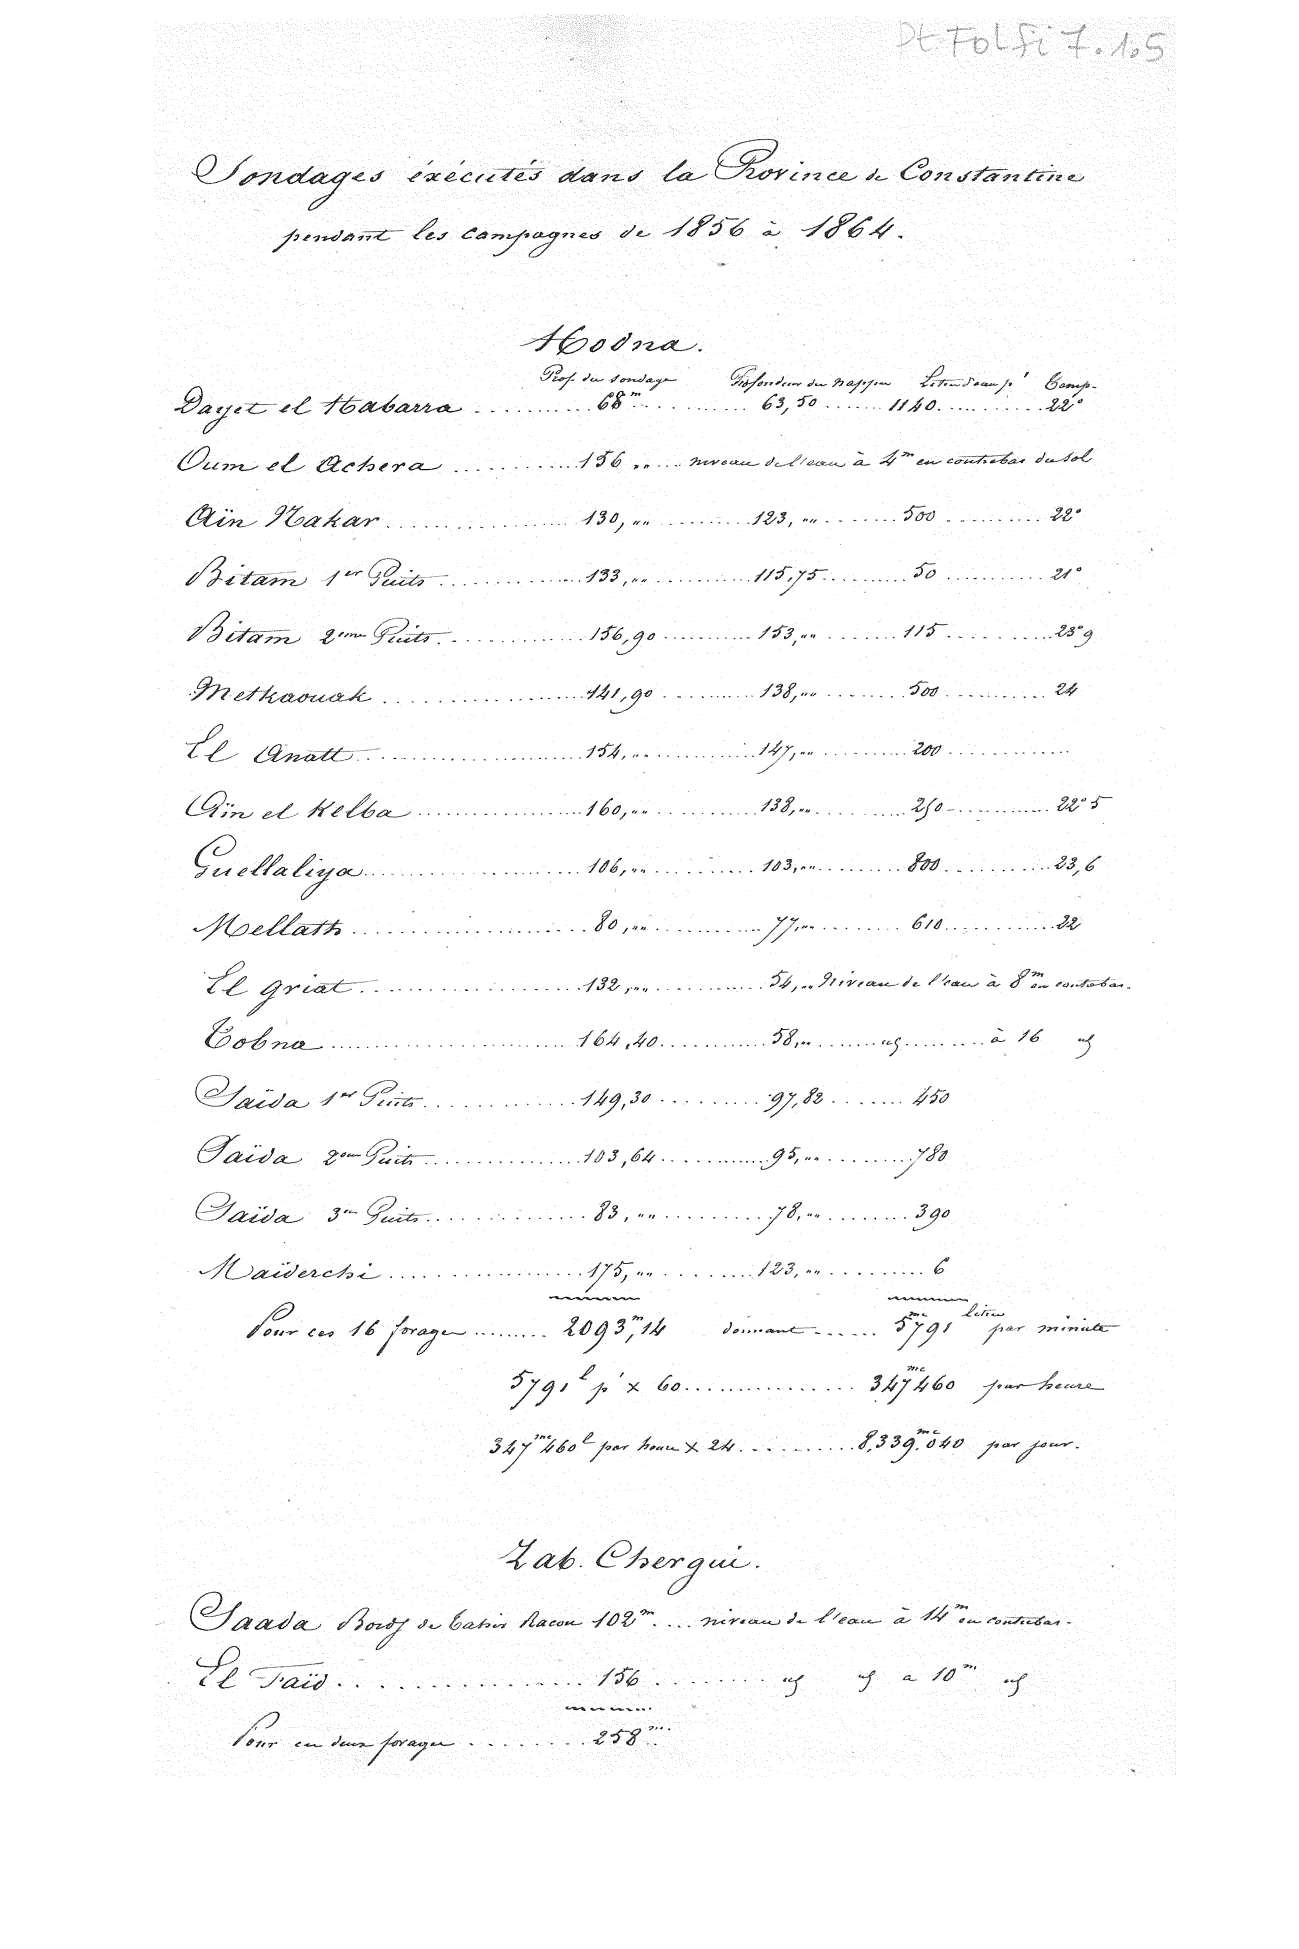 Pt Fol Fi 7.1.5
Sondages éxécutés dans la Province de Constantine
pendant les campagnes de 1856 à 1864.
Hodna.
Prof. du sondage Profondeur des nappes Litres d'eau p' Temp.
Dayet el Habarra .......... 68m .......... 63,50 ...... 1140 .......... 22°
Oum el Achera .......... 156 „ .... niveau de l'eau à 4m en contrebas du sol
Aïn Nakar .......... 130, „ .......... 123, „ ........ 500 .......... 22°
Bitam 1er Puits .......... 133, „ .......... 115,75 ........ 50 .......... 21°
Bitam 2eme Puits .......... 156,90 .......... 153, „ ........ 115 .......... 23°9
Metkaouak .......... 141,90 .......... 138, „ ........ 500 .......... 24
El Anatt .......... 154, „ .......... 147, „ ........ 200 ..........
Aïn el Kelba .......... 160, „ .......... 138, „ ........ 250 .......... 22°5
Guellaliya .......... 106, „ .......... 103, „ ........ 800 .......... 23,6
Mellath .......... 80, „ .......... 77, „ ........ 610 .......... 22
El Griat .......... 132, „ .......... 54, „ Niveau de l'eau à 8m en contrebas.
Tobna .......... 164,40 .......... 58, „ ........ id ........ à 16 id
Saïda 1er Puits .......... 149,30 .......... 97,82 ....... 450
Saïda 2eme Puits .......... 103,64 .......... 95, „ ........ 780
Saïda 3me Puits .......... 83, „ .......... 78, „ ........ 390
Maïderchi .......... 175, „ .......... 123, „ ........ 6
Pour ces 16 forages ........ 2093m,14 donnant ...... 5mc791 litres par minute
5791l p' x 60 .......... 347mc460 par heure
347mc460l par heure x 24 .......... 8,339mc.040 par jour.
Zab. Chergui.
Saada Bordj de Taïer Racou 102m .... niveau de l'eau à 14m en contrebas.
El Faïd .......... 156 .......... id id a 10m id
Pour ces deux forages .......... 258m.